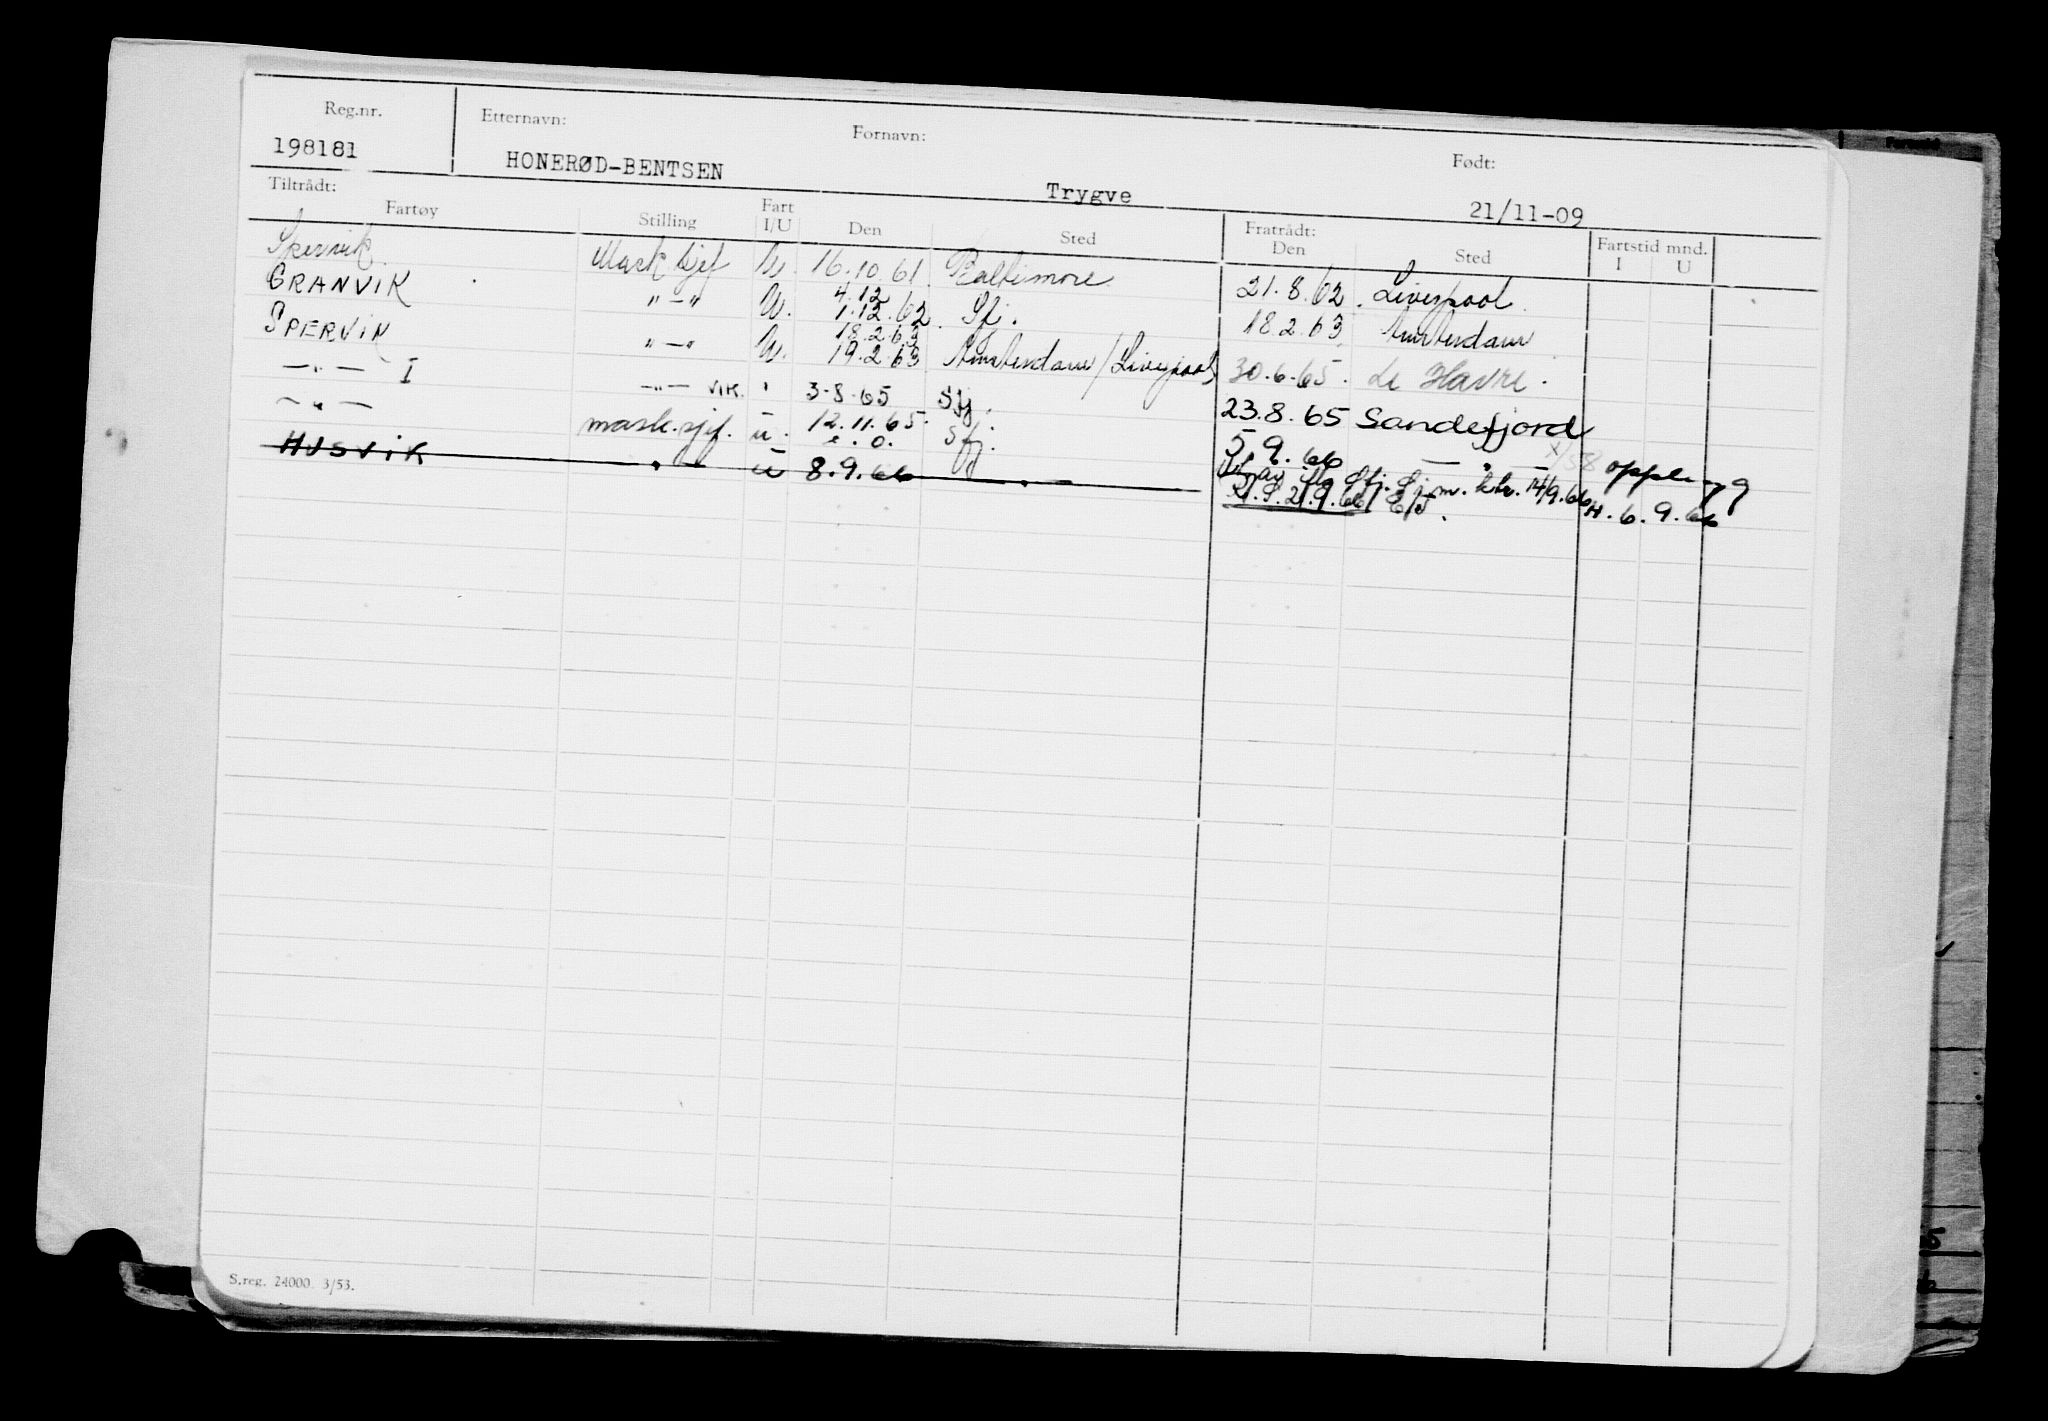 Reg.nr. Etternavn: Fornavn: Født:
198181 HONERØD-BENTSEN Trygve 21/11-09
Tiltrådt: Fratrådt:
Fartøy Stilling Fart I/U Den Sted Den Sted Fartstid mnd. I U
Spervik Mask sjef U. 16.10.61. Baltimore 21.8.62. Liverpool
GRANVIK "-" U. 4.12 1.12.62. Sfj. 18.2.63 Amsterdam
SPERVIK "-" U. 18.2.63 19.2.63 Amsterdam/Liverpool 30.6.65. Le Havre.
-"- I -"- VIK. " 3.8.65 Sfj. 23.8.65 Sandefjord
-"- mask.sjef. u. 12.11.65. Sfj. 5.9.66 - " -
e.o.
HUSVIK " - u 8.9.66 - " -
Sfj. m. 14/9.66 H. 6.9.66
21.9.66
S.reg. 24000 3/53.